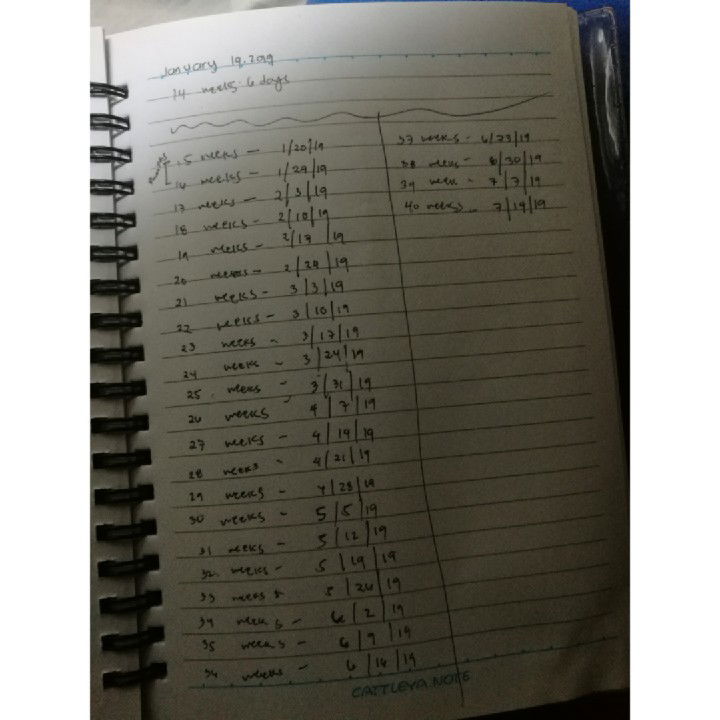 January 19, 2019
14 weeks 6 days
15 weeks - 1/20/19
16 weeks - 1/29/19
17 weeks - 2/3/19
18 weeks - 2/10/19
19 weeks - 2/17/19
20 weeks - 2/24/19
21 weeks - 3/3/19
22 weeks - 3/10/19
23 weeks - 3/17/19
24 weeks - 3/24/19
25 weeks - 3/31/19
26 weeks - 4/7/19
27 weeks - 4/14/19
28 weeks - 4/21/19
29 weeks - 4/28/19
30 weeks - 5/5/19
31 weeks - 5/12/19
32 weeks - 5/19/19
33 weeks - 5/26/19
34 weeks - 6/2/19
35 weeks - 6/9/19
36 weeks - 6/16/19
37 weeks - 6/23/19
38 weeks - 6/30/19
39 week - 7/7/19
40 weeks - 7/14/19
CATTLEYA NOTE